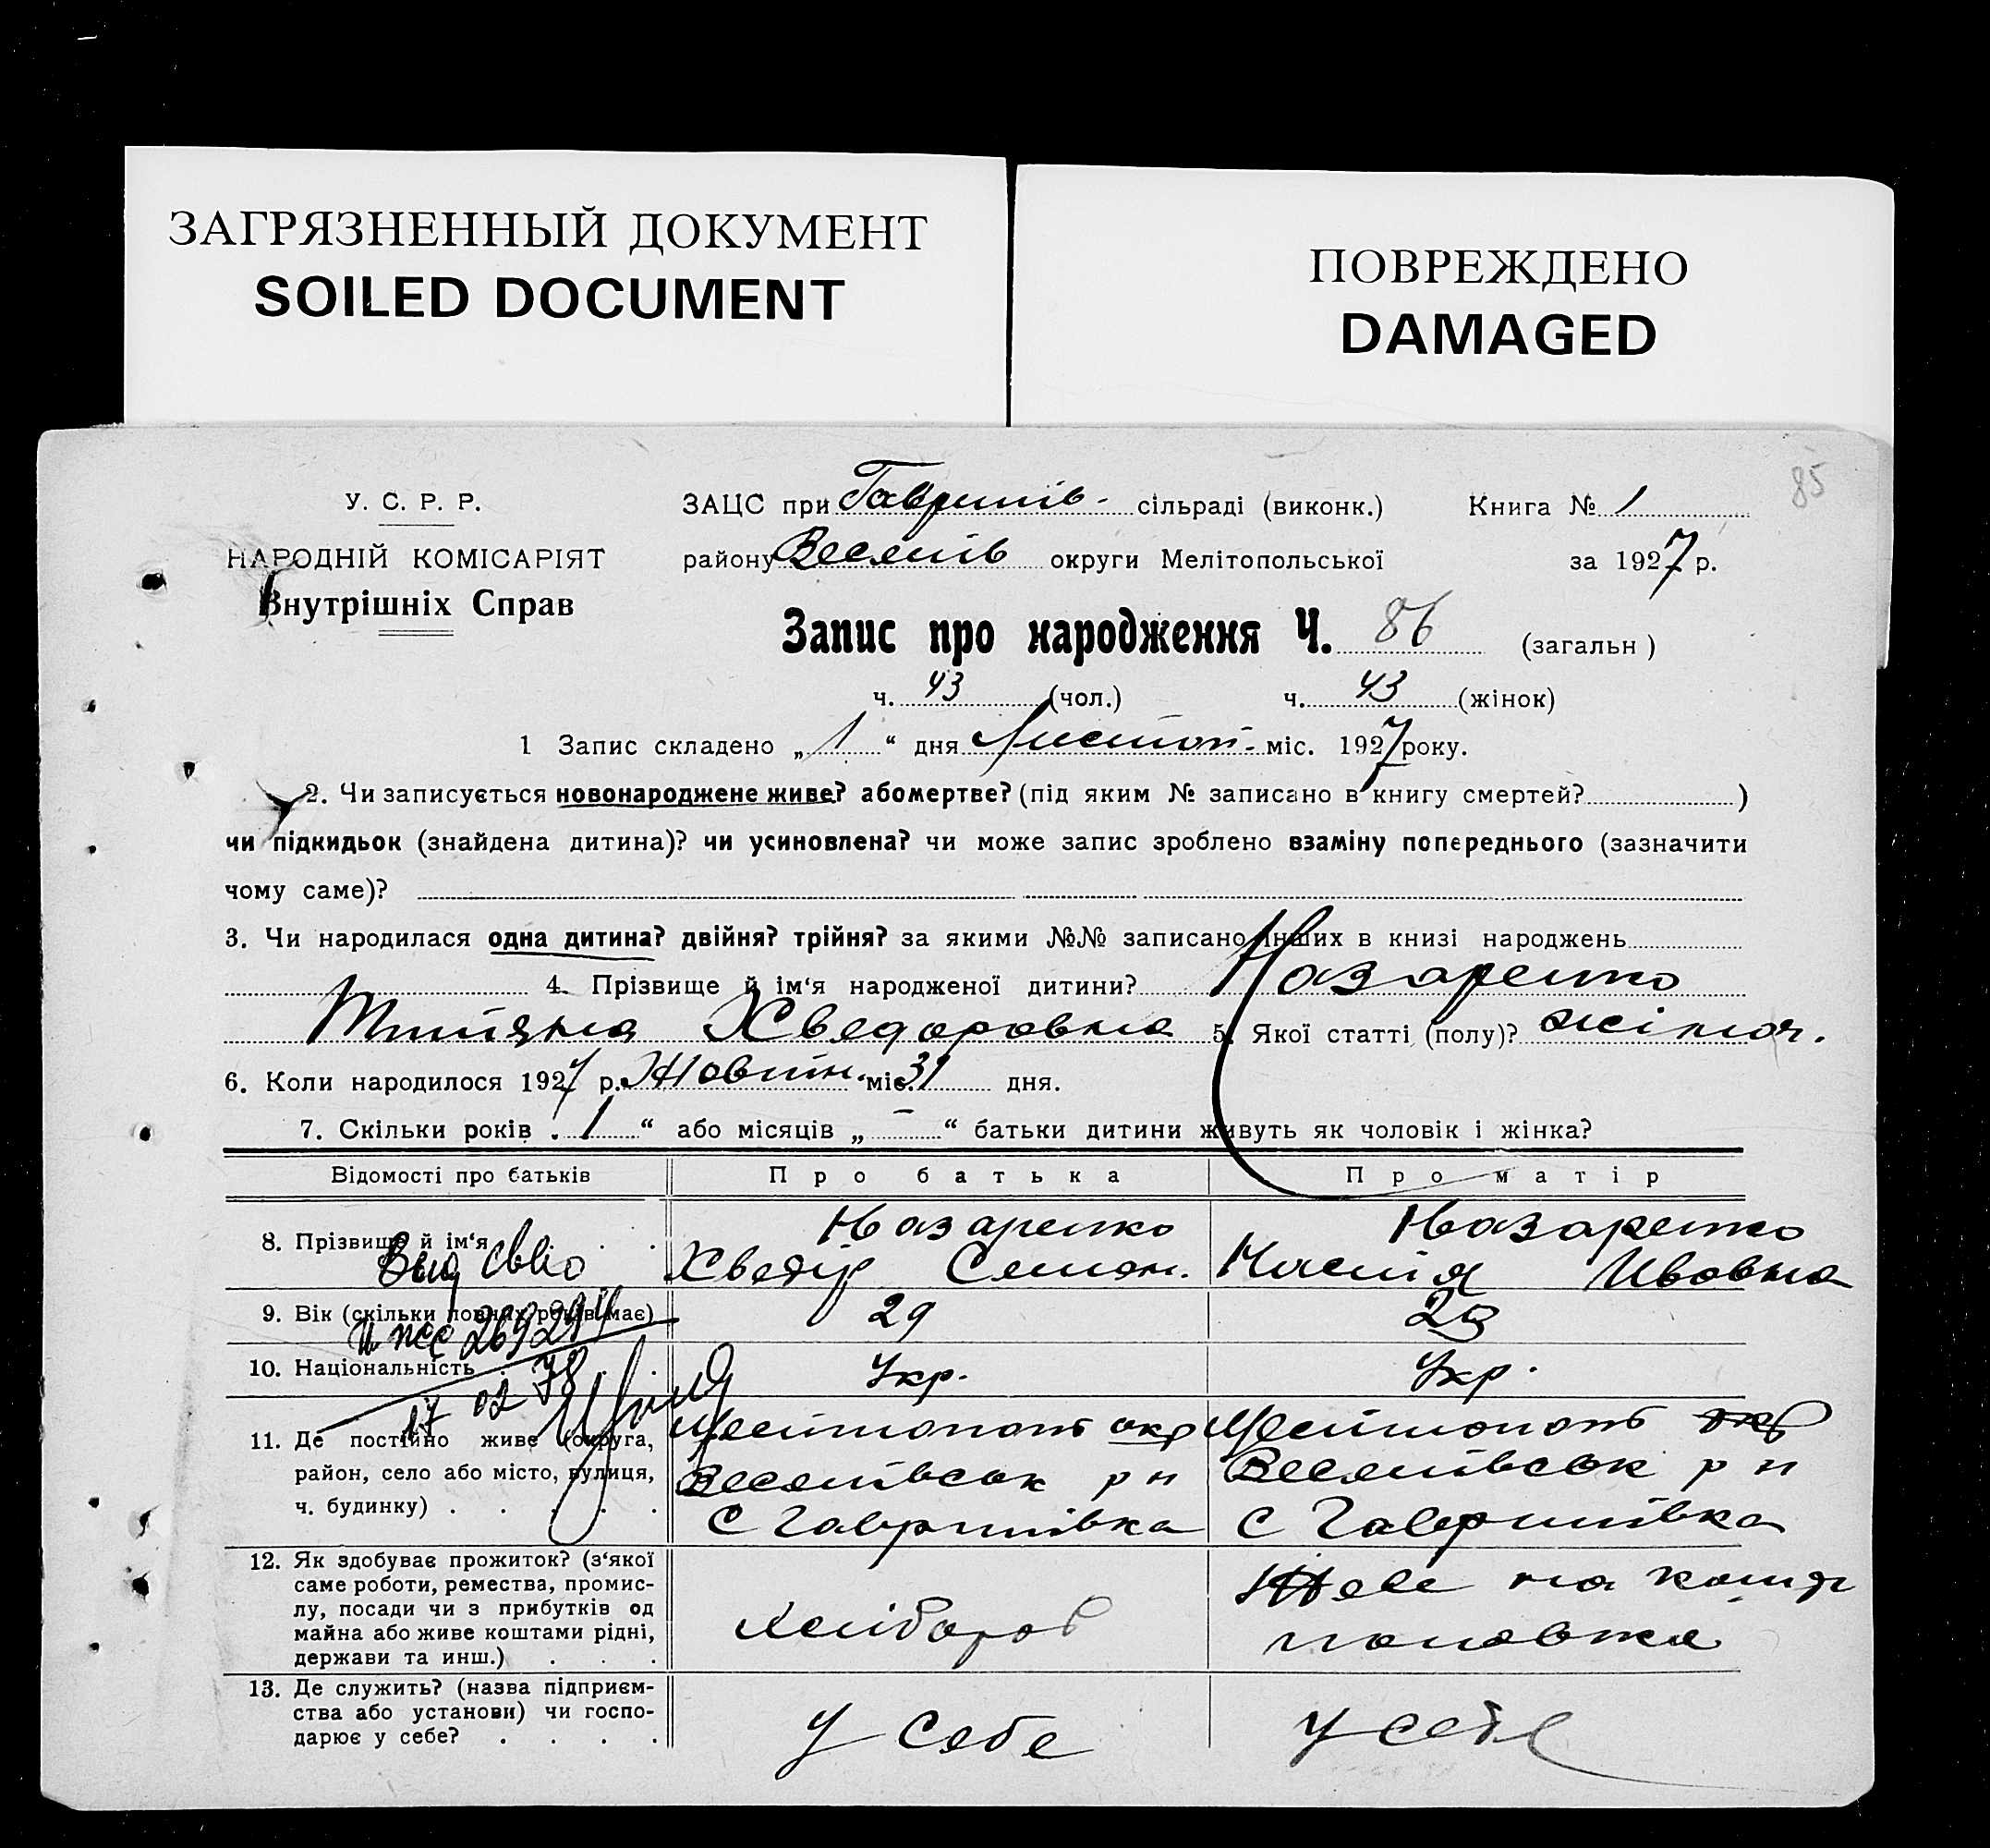 ЗАГРЯЗНЕННЫЙ ДОКУМЕНТ
SOILED DOCUMENT
ПОВРЕЖДЕНО
DAMAGED
85
У. С. Р. Р.
НАРОДНІЙ КОМІСАРІЯТ
Внутрішніх Справ
ЗАЦС при Гаврилів- сільраді (виконк.) Книга № 1
району Веселів округи Мелітопольської за 1927 р.
Запис про народження Ч. 86 (загальн )
ч. 43 (чол.) ч. 43 (жінок)
1 Запис складено „ 1 “ дня Листоп- міс. 1927 року.
2. Чи записується новонароджене живе? або мертве? (під яким № записано в книгу смертей? )
чи підкидьок (знайдена дитина)? чи усиновлена? чи може запис зроблено взаміну попереднього (зазначити
чому саме)?
3. Чи народилася одна дитина? двійня? трійня? за якими №№ записано інших в книзі народжень
4. Прізвище й ім‘я народженої дитини? Назаренко
Хведоровна 5. Якої статті (полу)? жіноч.
6. Коли народилося 1927 р. Жовтн. міс. 31 дня.
7. Скільки років . 1 “ або місяців „ - “ батьки дитини живуть як чоловік і жінка?
Відомості про батьків Про батька Про матір
8. Прізвище й ім‘я Назаренко Назаренко
Хведір Семен. Настія Ивовна
9. Вік (скільки повних років має) 29
10. Національність Укр. Укр.
17 02 78
11. Де постійно живе (округа, Мелітополь окр Мелітополь окр
район, село або місто, вулиця, Веселівськ р н Веселівськ р н
ч. будинку) С Гаврилівка С Гаврилівка
12. Як здобуває прожиток? (з‘якої
саме роботи, ремества, промис-
лу, посади чи з прибутків од
майна або живе коштами рідні,
держави та инш.)
Хлібороб
Живе на кошти
чоловіка
13. Де служить? (назва підприєм-
ства або установи) чи госпо-
дарює у себе?
У себе У себе